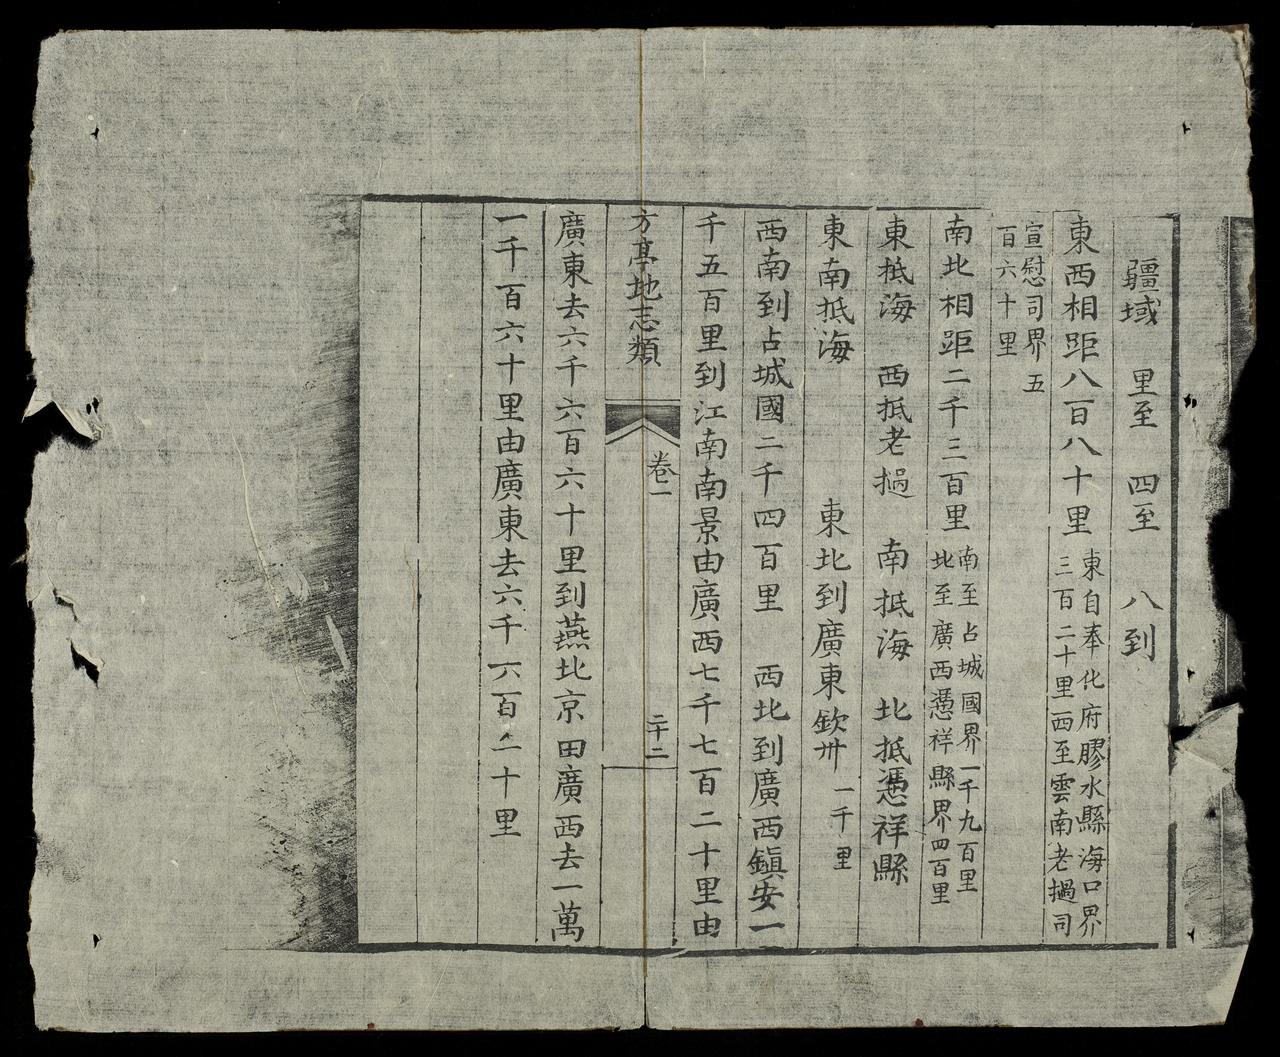 疆域　里至　四至　八到
東西相距八百八十里東自奉化府膠水縣海口界三百二十里西至雲南老撾司
宣慰司界五百六十里
南北相距二千三百里南至占城國界一千九百里北至廣西憑祥縣界四百里
東抵海　西抵老撾　南抵海　北抵憑祥縣
東南抵海　東北到廣東欽卅一千里
西南到占城國二千四百里　西北到廣西鎮安一
千五百里到江南南景由廣西七千七百二十里由
方亭地志類　卷一　二十二
廣東去六千六百六十里到燕北京田廣西去一萬
一千百六十里由廣東去六千六百二十里